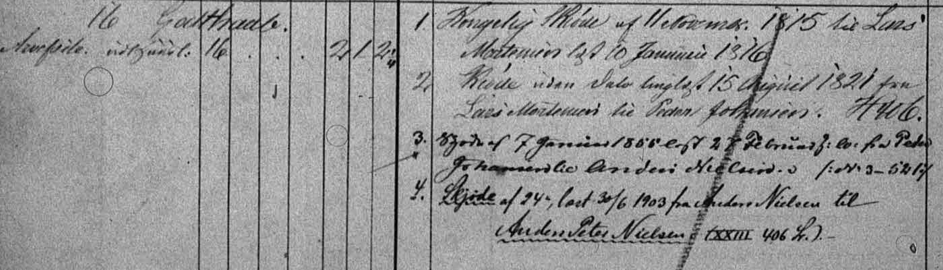 16 Godthaab.
Arvefæste. 16 . . . 2 1 2 2/4
1. Kongelig Skiöde af 11 1815 til Lars
Mortensen læst 10 Januarii 1816
2, Skiöde uden Dato tinglæst 15 August 1821 fra
Lars Mortensen til Peder Johansen. H 406.
3. af 7 Januar læst 27 Februar fra Peder
Johansen til Anders Nielsen.
4. Skjøde af 24", læst 30/6 1903 fra Anders Nielsen til
Anders Peter Nielsen (XXIII 406 L.) -